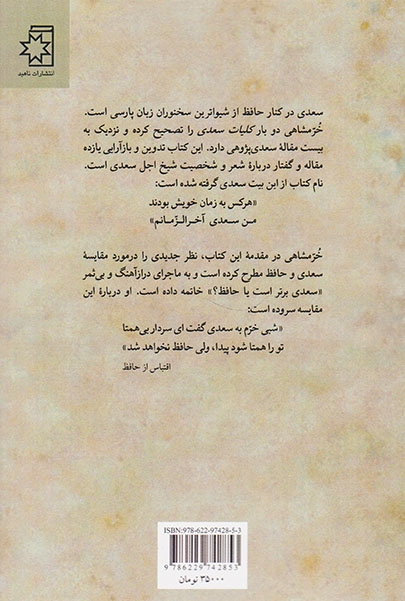 انتشارات ناهید
سعدی در کنار حافظ از شیواترین سخنوران زبان پارسی است.
خُرّمشاهی دو بار کلیات سعدی را تصحیح کرده و نزدیک به
بیست مقالهٔ سعدی‌پژوهی دارد. این کتاب تدوین و بازآرایی یازده
مقاله و گفتار دربارهٔ شعر و شخصیت شیخ اجل سعدی است.
نام کتاب از این بیت سعدی گرفته شده است:
«هرکس به زمان خویش بودند
من سعدی آخرالزّمانم»
خُرّمشاهی در مقدمهٔ این کتاب، نظر جدیدی را درمورد مقایسهٔ
سعدی و حافظ مطرح کرده است و به ماجرای درازآهنگ و بی‌ثمر
«سعدی برتر است یا حافظ؟» خاتمه داده است. او دربارهٔ این
مقایسه سروده است:
«شبی خرّم به سعدی گفت ای سردار بی‌همتا
تو را همتا شود پیدا، ولی حافظ نخواهد شد»
اقتباس از حافظ
ISBN:978-622-97428-5-3
9 786229 742853
۳۵۰۰۰ تومان